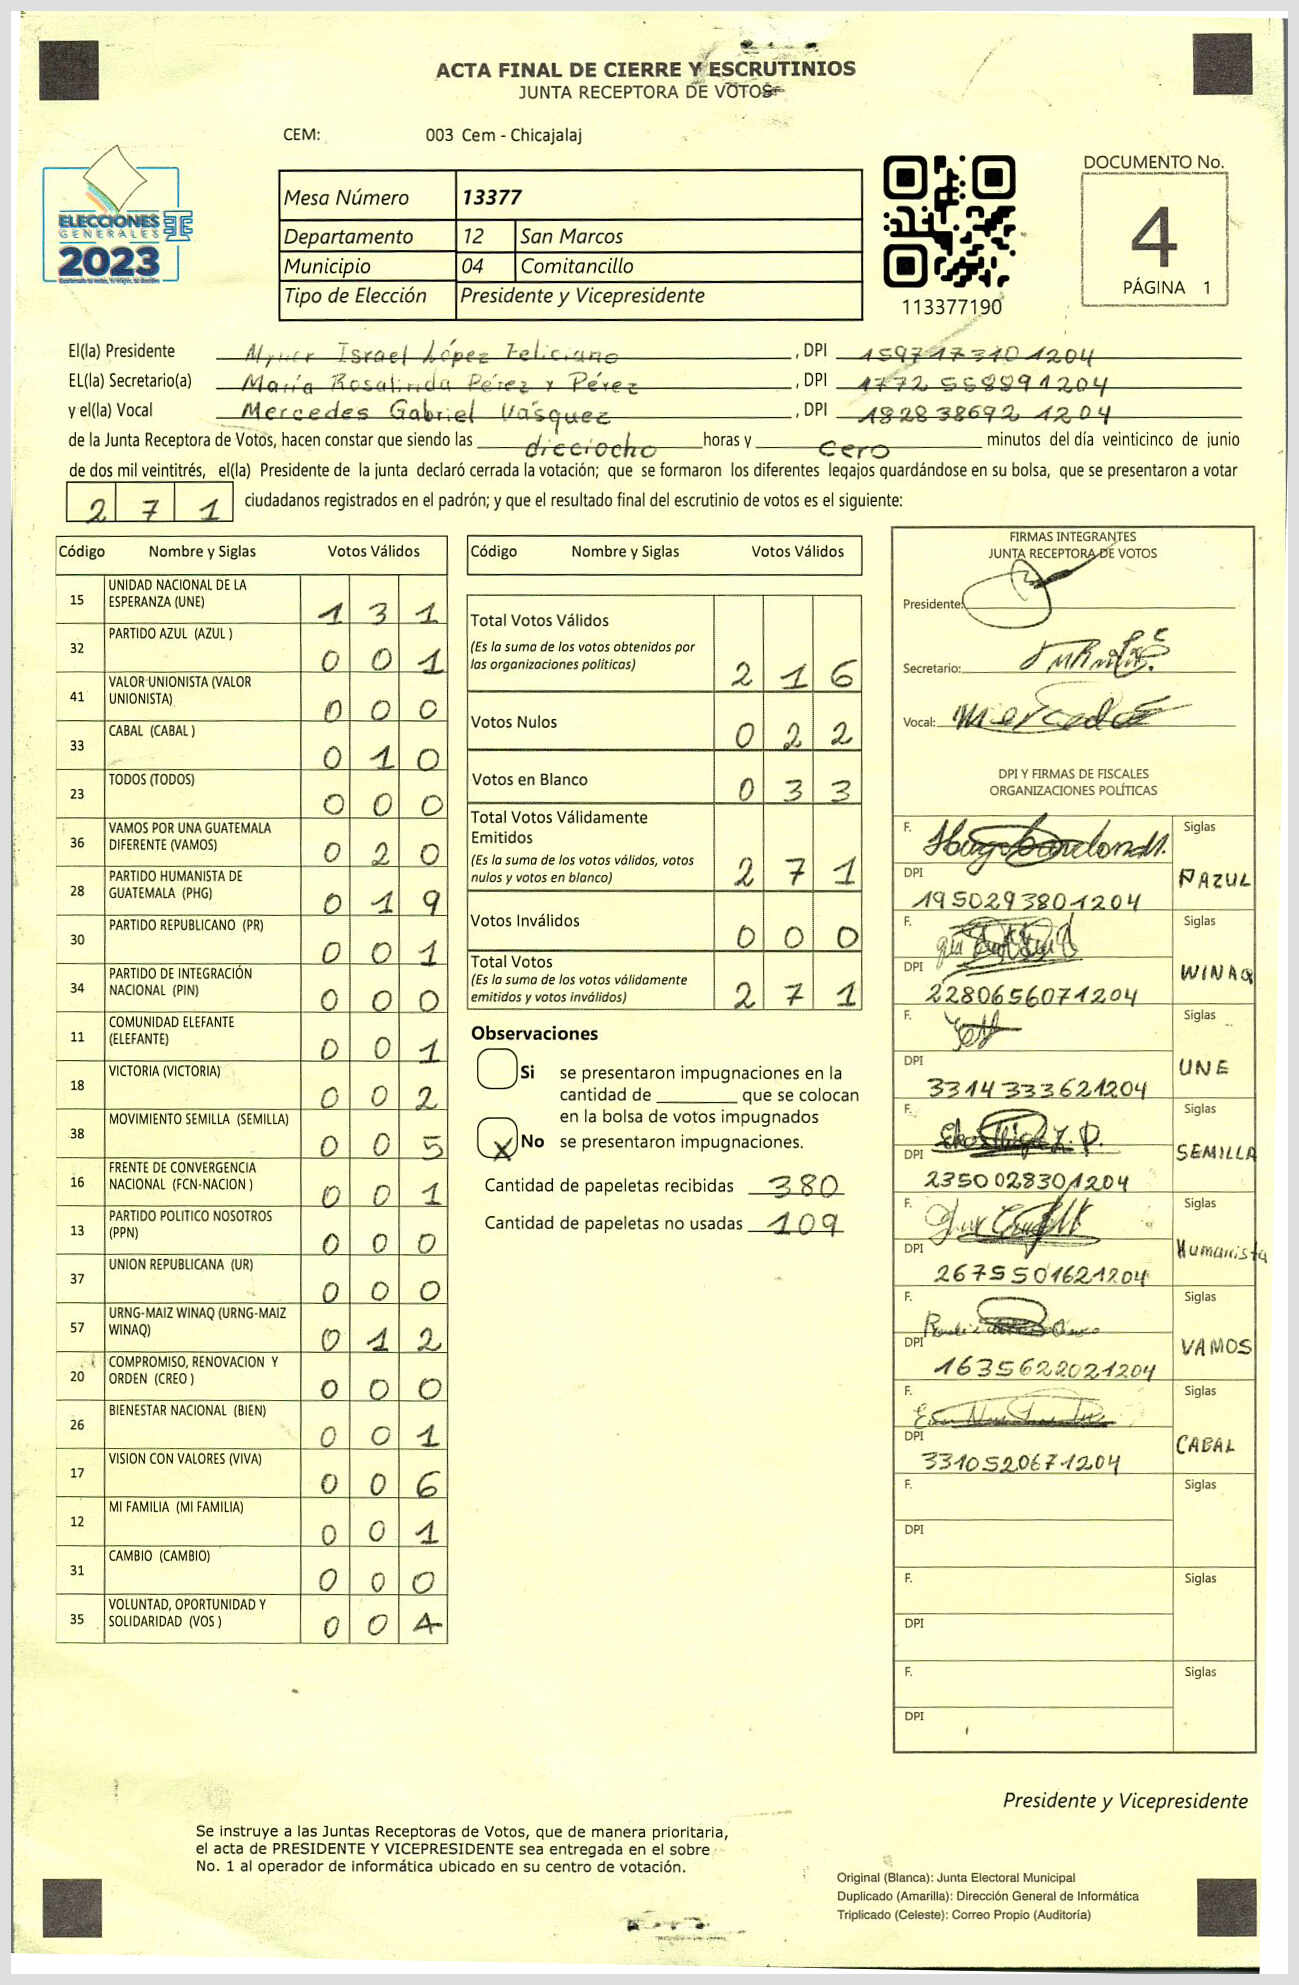 ACTA FINAL DE CIERRE Y ESCRUTINIOS
JUNTA RECEPTORA DE VOTOS
CEM: 003 Cem - Chicajalaj
ELECCIONES
GENERALES
2023
Mesa Número 13377
Departamento 12 San Marcos
Municipio 04 Comitancillo
Tipo de Elección Presidente y Vicepresidente
113377190
DOCUMENTO No.
4
PÁGINA 1
El(la) Presidente Israel López Feliciano, DPI 1597173101204
EL(la) Secretario(a) María Rosalinda Pérez y Pérez, DPI 1772558891204
y el(la) Vocal Mercedes Gabriel Vásquez, DPI 182838692 1204
de la Junta Receptora de Votos, hacen constar que siendo las dieciocho horas y cero minutos del día veinticinco de junio
de dos mil veintitrés, el(la) Presidente de la junta declaró cerrada la votación; que se formaron los diferentes legajos guardándose en su bolsa, que se presentaron a votar
2 7 1 ciudadanos registrados en el padrón; y que el resultado final del escrutinio de votos es el siguiente:
Código Nombre y Siglas Votos Válidos
15 UNIDAD NACIONAL DE LA
ESPERANZA (UNE) 1 3 1
32 PARTIDO AZUL (AZUL ) 0 0 1
41 VALOR UNIONISTA (VALOR
UNIONISTA) 0 0 0
33 CABAL (CABAL ) 0 1 0
23 TODOS (TODOS) 0 0 0
36 VAMOS POR UNA GUATEMALA
DIFERENTE (VAMOS) 0 2 0
28 PARTIDO HUMANISTA DE
GUATEMALA (PHG) 0 1 9
30 PARTIDO REPUBLICANO (PR) 0 0 1
34 PARTIDO DE INTEGRACIÓN
NACIONAL (PIN) 0 0 0
11 COMUNIDAD ELEFANTE
(ELEFANTE) 0 0 1
18 VICTORIA (VICTORIA) 0 0 2
38 MOVIMIENTO SEMILLA (SEMILLA) 0 0 5
16 FRENTE DE CONVERGENCIA
NACIONAL (FCN-NACION ) 0 0 1
13 PARTIDO POLITICO NOSOTROS
(PPN) 0 0 0
37 UNION REPUBLICANA (UR) 0 0 0
57 URNG-MAIZ WINAQ (URNG-MAIZ
WINAQ) 0 1 2
20 COMPROMISO, RENOVACION Y
ORDEN (CREO ) 0 0 0
26 BIENESTAR NACIONAL (BIEN) 0 0 1
17 VISION CON VALORES (VIVA) 0 0 6
12 MI FAMILIA (MI FAMILIA) 0 0 1
31 CAMBIO (CAMBIO) 0 0 0
35 VOLUNTAD, OPORTUNIDAD Y
SOLIDARIDAD (VOS ) 0 0 4
Código Nombre y Siglas Votos Válidos
Total Votos Válidos
(Es la suma de los votos obtenidos por
las organizaciones políticas) 2 1 6
Votos Nulos 0 2 2
Votos en Blanco 0 3 3
Total Votos Válidamente
Emitidos
(Es la suma de los votos válidos, votos
nulos y votos en blanco) 2 7 1
Votos Inválidos 0 0 0
Total Votos
(Es la suma de los votos válidamente
emitidos y votos inválidos) 2 7 1
Observaciones
Si se presentaron impugnaciones en la
cantidad de ________ que se colocan
en la bolsa de votos impugnados
X No se presentaron impugnaciones.
Cantidad de papeletas recibidas 380
Cantidad de papeletas no usadas 109
FIRMAS INTEGRANTES
JUNTA RECEPTORA DE VOTOS
Presidente:
Secretario:
Vocal:
DPI Y FIRMAS DE FISCALES
ORGANIZACIONES POLÍTICAS
F. Siglas
DPI 1950293801204 PAZUL
F. Siglas
DPI 2280656071204 WINAQ
F. Siglas
DPI 3314333621204 UNE
F. Siglas
DPI 2350028301204 SEMILLA
F. Siglas
DPI 2675501621204 Humanista
F. Siglas
DPI 1635622021204 VAMOS
F. Siglas
DPI 3310520671204 CABAL
F. Siglas
DPI
F. Siglas
DPI
F. Siglas
DPI
Presidente y Vicepresidente
Se instruye a las Juntas Receptoras de Votos, que de manera prioritaria,
el acta de PRESIDENTE Y VICEPRESIDENTE sea entregada en el sobre
No. 1 al operador de informática ubicado en su centro de votación.
Original (Blanca): Junta Electoral Municipal
Duplicado (Amarilla): Dirección General de Informática
Triplicado (Celeste): Correo Propio (Auditoría)